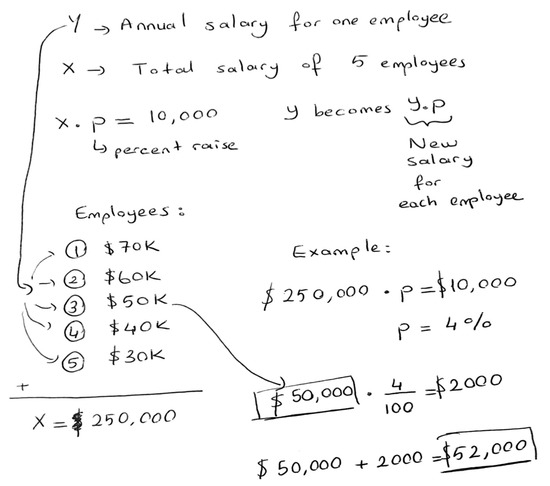 Y → Annual salary for one employee
X → Total salary of 5 employees
X · P = 10,000
↳ percent raise
y becomes y.p
New
salary
for
each employee
Employees:
① $70K
② $60K
③ $50K
④ $40K
⑤ $30K
+
X = $ 250,000
Example:
$250,000 · P = $10,000
P = 4%
$50,000 · 4/100 = $2000
$50,000 + 2000 = $52,000